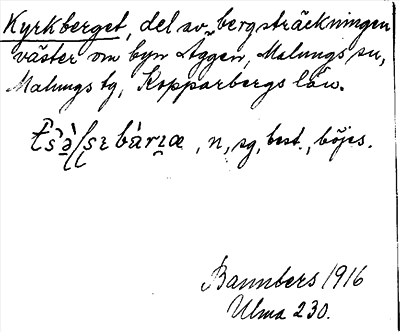 Kyrkberget, del av bergsträckningen
väster om byn Aggen, Malungs sn,
Malungs tg, Kopparbergs län.
n, sg, best., böjes.
Bannbers 1916
Ulma 230.